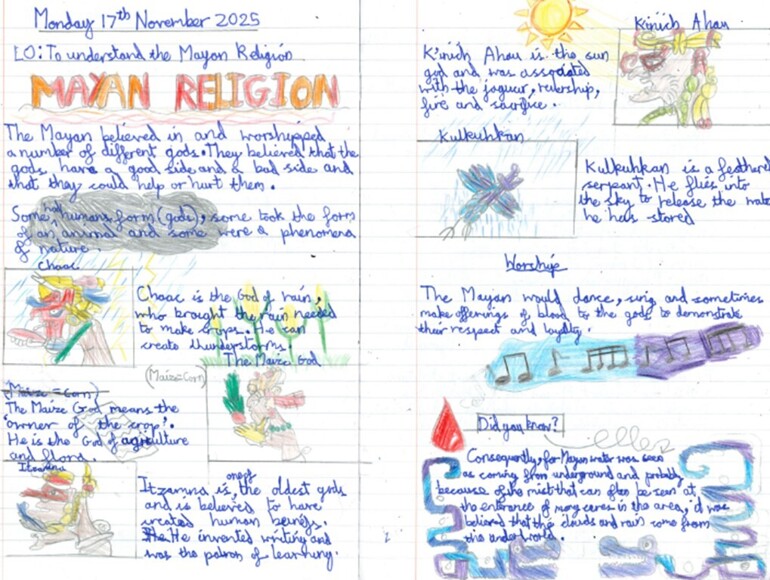 Monday 17th November 2025
LO: To understand the Mayan Religion
MAYAN RELIGION
The Mayan believed in and worshipped
a number of different gods. They believed that the
gods, have a good side and a bad side and
that they could help or hurt them.
Some had humans form (gods), some took the form
of an animal and some were a phenomena
of nature.
Chaac
Chaac is the God of rain,
who brought the rain needed
to make crops. He can
create thunderstorms.
The Maize God
(Maize=Corn)
(Maize = Corn)
The Maize God means the
'owner of the crop'.
He is the God of agriculture
and flora.
Itzamna
Itzamna is, one of the oldest gods
and is believed to have
created human beings.
He. He invented writing and
was the patron of learning.
Kinich Ahau
K'inich Ahau is the sun
god and was associated
with the jaguar, rulership,
fire and sacrifice.
Kulkuhkan
Kulkuhkan is a feathered
serpent. He flies into
the sky to release the
he has stored
Worship
The Mayan would dance, sing and sometimes
make offerings of blood to the gods to demonstrate
their respect and loyalty.
Did you know?
Consequently, for Mayan water was seen
as coming from underground and probably
because of the mist that can often be seen at
the entrance of many caves in the area, it was
believed that the clouds and rain come from
the underworld.